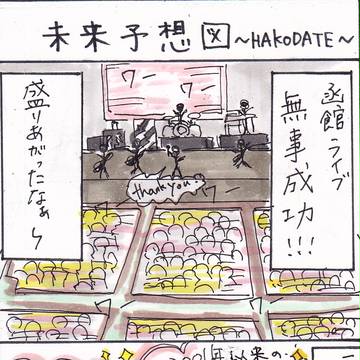 未来予想図 ~HAKODATE~
函館ライブ
無事、成功!!!
ワー
ワー
thank you
ワー
盛りあがったなぁ〜
1年以来の